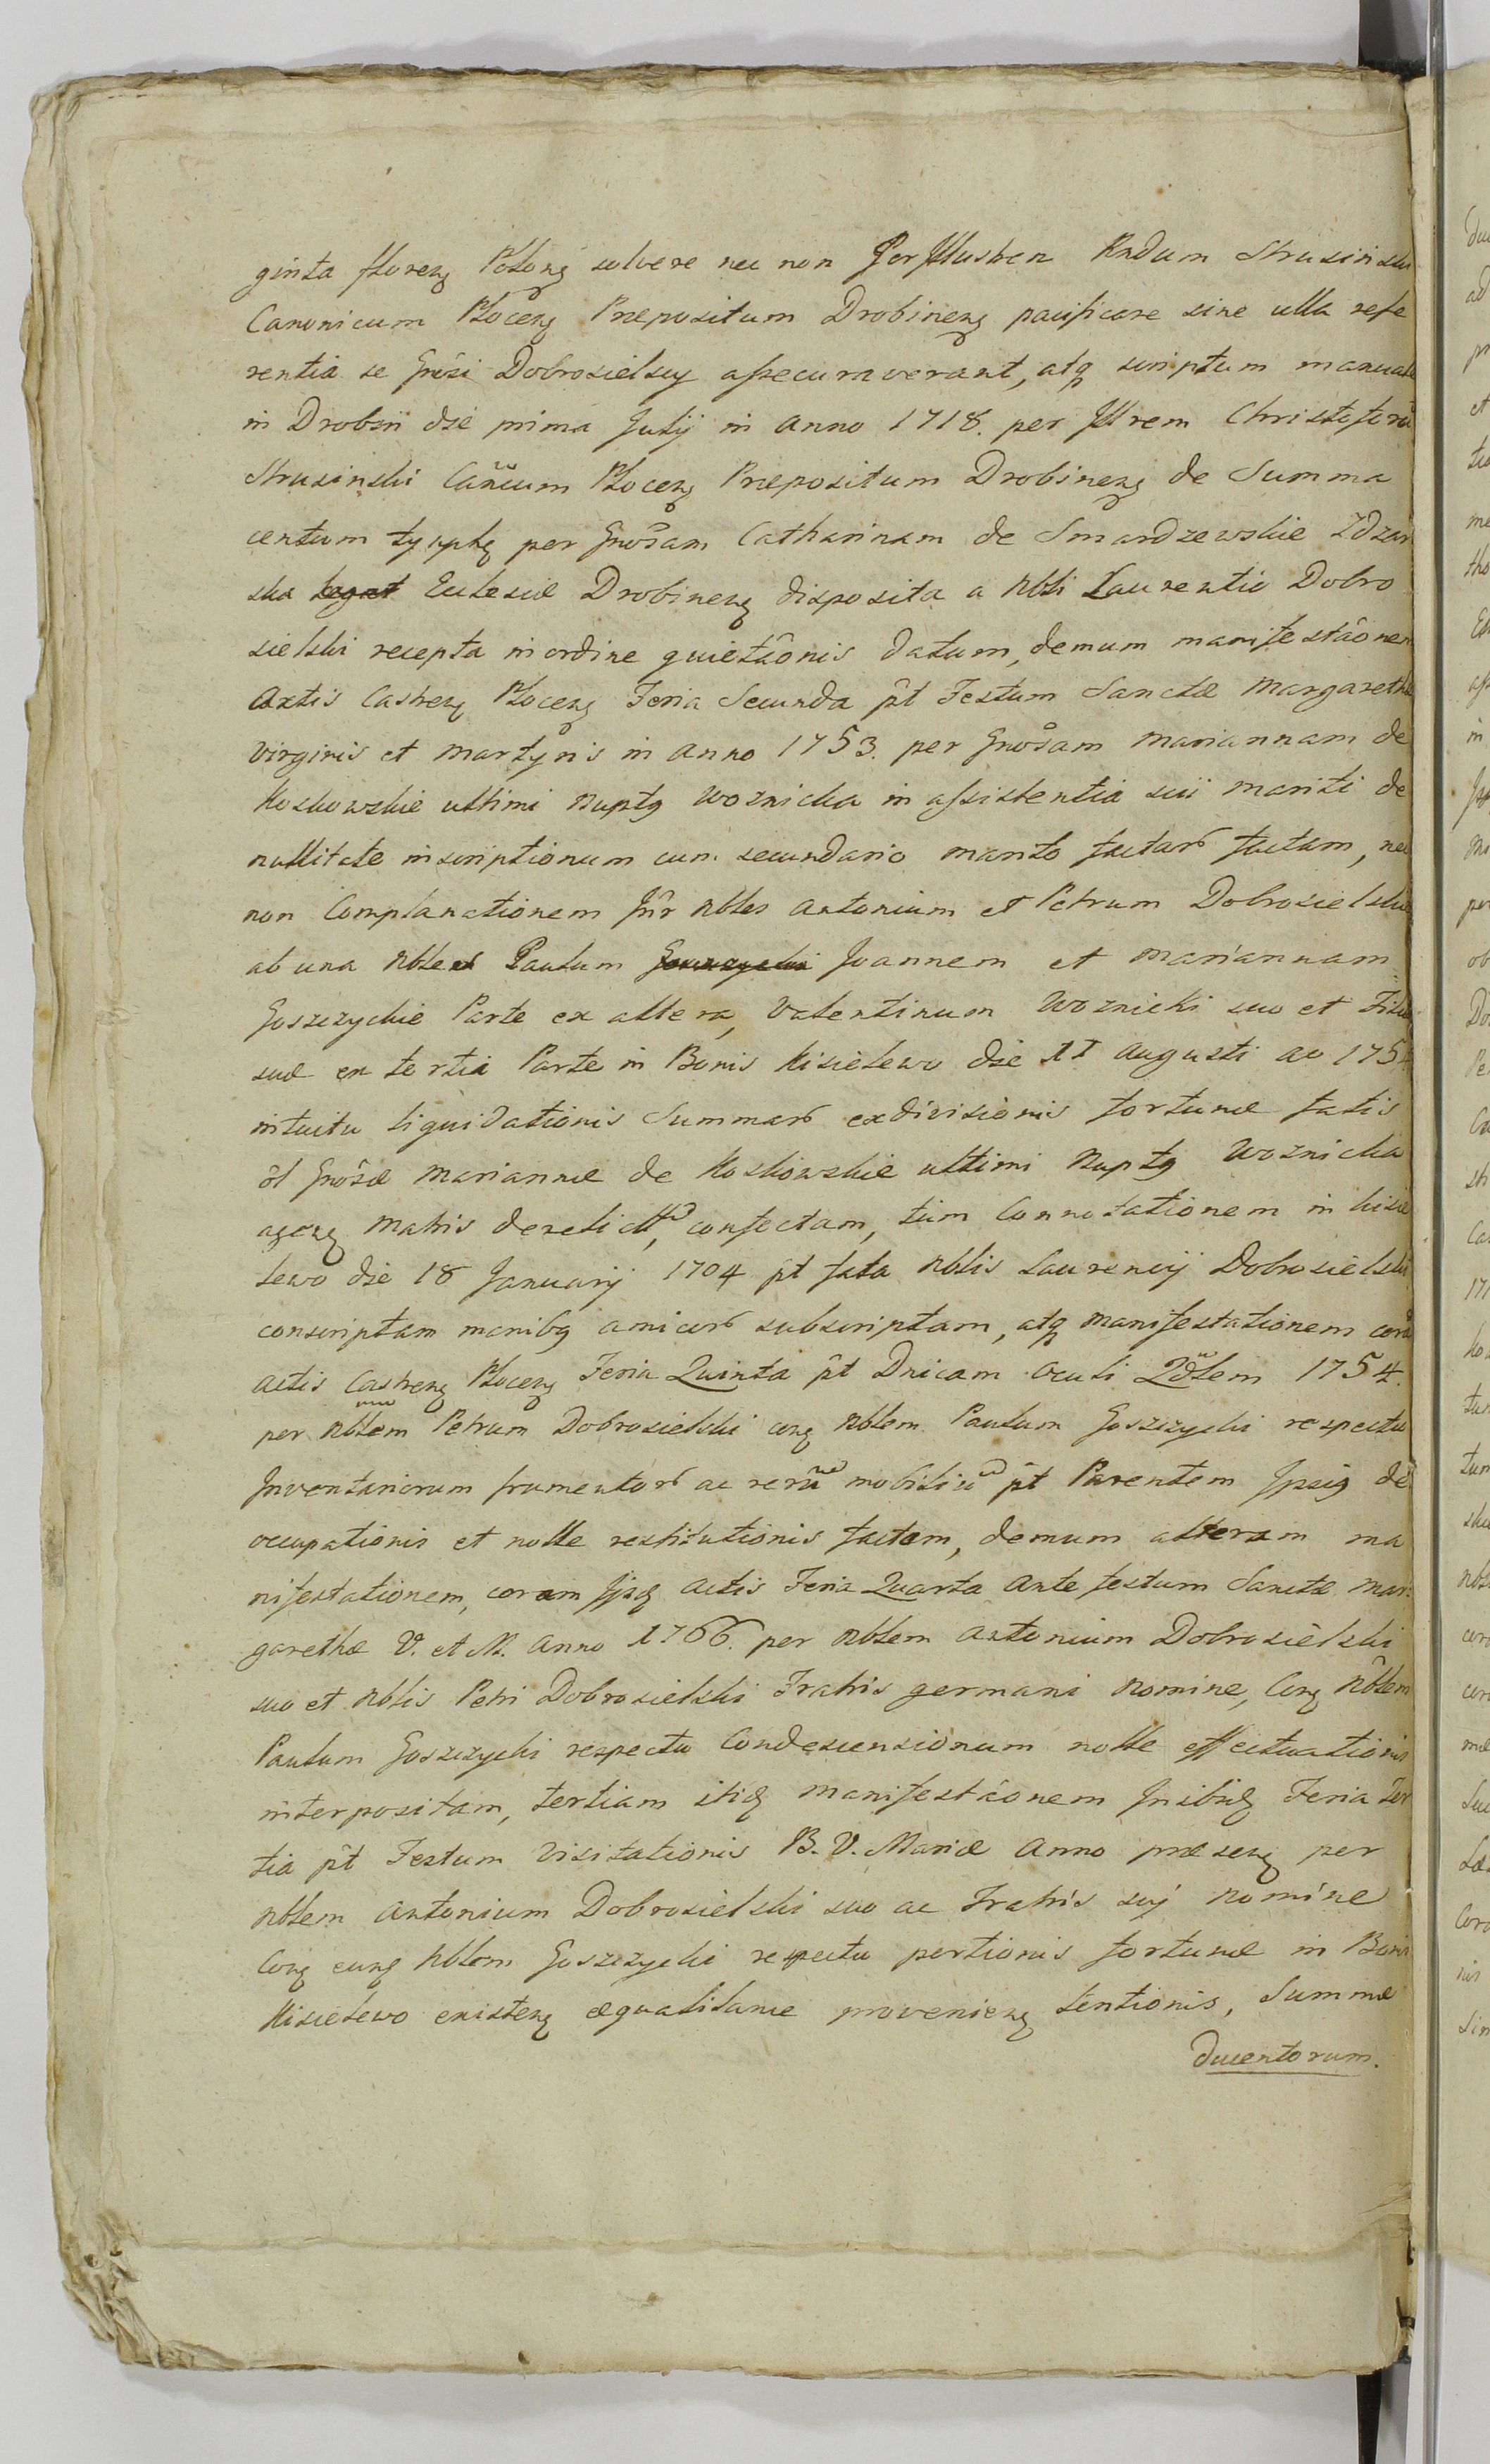 ginta floreng Polong solvere nec non PerIllustren Rndum Strusinski
Canonicum Płoceng Præpositum Drobineng pacificare sine ulla refe
rentia se Gnôsi Dobrosielscy assecuraverant, atq scriptum manuale
in Drobin die prima Julij in Anno 1718. per Illrem Christoforũ
Strusinski Cãncum Płoceng Præpositum Drobineng de Summa
centum tymphg per Gnosam Catharinam de Smardzewskie Zdzar
ska legat Eclesiæ Drobineng disposita a Nbli Laurentio Dobro
sielski recepta in ordine quietâonis datum, demum manifestâonem
Actis Castreng Płoceng Feria Secunda pt Festum Sanctæ Margarethæ
Virginis et Martyris in Anno 1753. per Gnosam Mariannam de
Koskowskie ultimi Nuptg Woznicka in assistentia sui mariti de
nullitate inscriptionum cum secundario marito factar factam, nec
non Complanationem Intr Nbles Antonium et Petrum Dobrosielskie
ab una Nbles Paulum Joannem et Mariannam
Goszczyckie Parte ex altera, Valentinum Woznicki suo et Filiæ
suæ ex tertia Parte in Bonis Kisielewo die 11 Augusti ao 1754
intuitu liquidationis Summar exdivisionis fortunæ fatis
ol Gnôsæ Mariannæ de Koskowskie ultimi Nuptg Woznicka
ageng Matris derelictæ, confectam, tum Connotationem in Kisie
lewo die 18 Januarij 1704 pt fata Nblis Laurencij Dobrosielski
conscriptam manibg amicor subscriptam, atq Manifestationem corã
actis Castreng Płoceng Feria Quinta pt Dnicam Oculi Qdlem 1754.
per Nblem Petrum Dobrosielski cong Nblem Paulum Goszczycki respectu
Inventariorum frumentor ac rerũ mobiliũ pt Parentem Ipsig de
occupationis et nolle restitutionis factam, demum alteram ma
nifestationem, coram Ijsdg Actis Feria Quarta Ante festum Sanctæ Mar
garethæ V. et M. Anno 1766. per Nblem Antonium Dobrosielski
suo et Nblis Petri Dobrosielski Fratris germani Nomine, Cong Nblem
Paulum Goszczycki respectu Condescensionum nolle effectuationis
interpositam, tertiam itidg Manifestâonem Inibidg Feria Ter
tia pt Festum Visitationis B. V. Mariæ Anno præseng per
Nblem Antonium Dobrosielski suo ac Fratris sui nomine
Cong eung Nblem Goszczycki respectu portionis fortunæ in Bonis
Kisielewo existeng æqualitame provenieng tentionis, Summæ
Ducentorum.